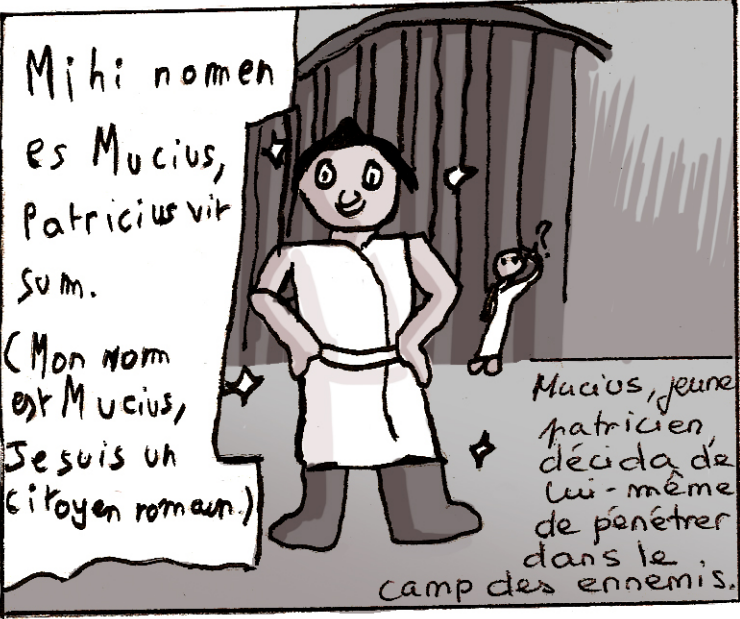 Mihi nomen
es Mucius,
Patricius vir
sum.
(Mon nom
est Mucius,
Je suis un
citoyen romain.)
?
Mucius, jeune
patricien,
décida de
lui-même
de pénétrer
dans le
camp des ennemis.